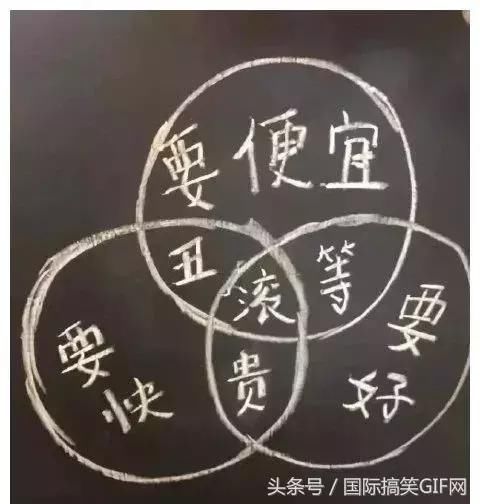 要便宜
丑
滚
等
要快
贵
要好
头条号／国际搞笑GIF网